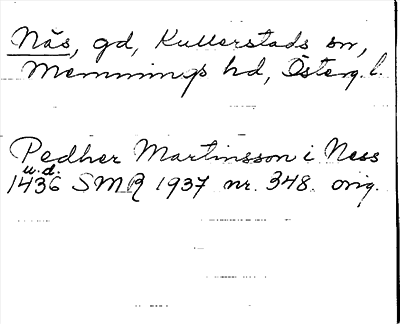 Näs, gd, Kullerstads sn,
Memmings hd, Österg. l.
Pedher Martinsson i Ness
u.d.
1436 SMR 1937 nr. 348. orig.